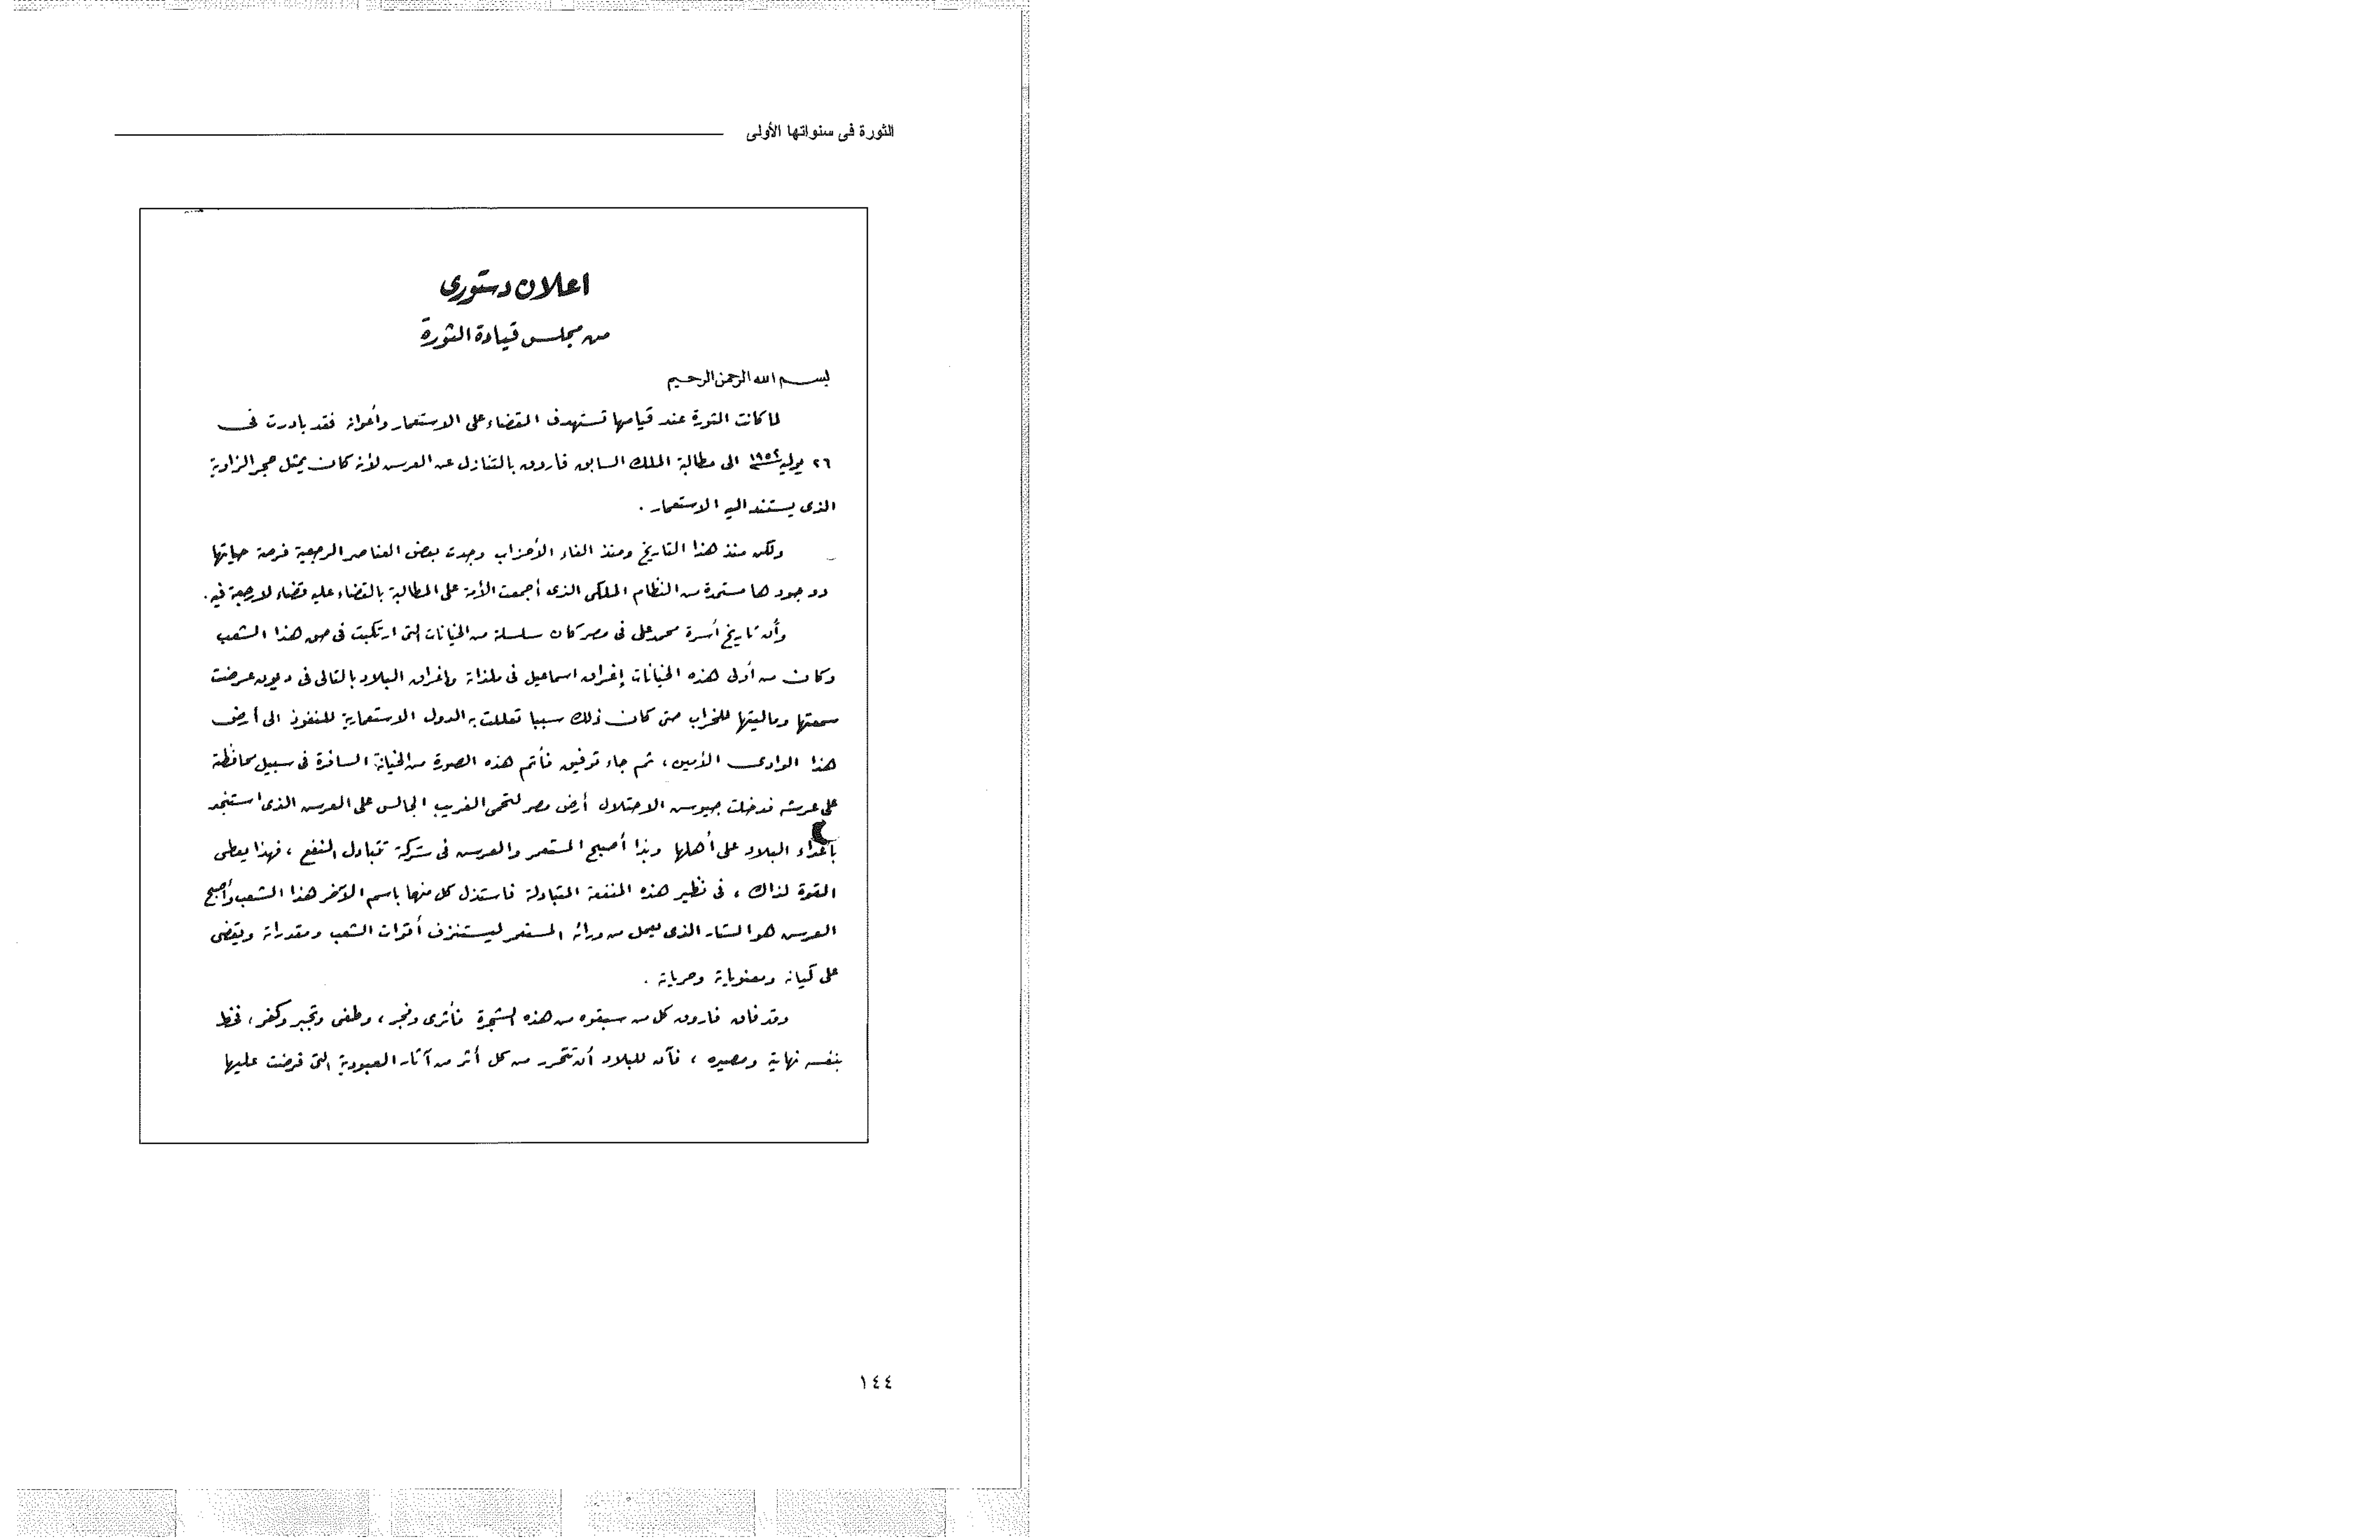 الثورة فى سنواتها الأولى
اعلان دستورى
من مجلس قيادة الثورة
بسم الله الرحمن الرحيم
لما كانت الثورة عند قيامها تستهدف القضاء على الاستعمار وأعوانه فقد بادرت فى
٢٦ يوليه ١٩٥٢ الى مطالبة الملك السابق فاروق بالتنازل عن العرش لأنه كان يمثل حجر الزاوية
الذى يستند اليه الاستعمار .
ولكن منذ هذا التاريخ ومنذ الغاء الأحزاب وجدت بعض العناصر الرجعية فرصة حياتها
ووجودها مستمدة من النظام الملكى الذى أجمعت الأمة على المطالبة بالقضاء عليه قضاء لا رجعة فيه .
وأن تاريخ أسرة محمد على فى مصر كان سلسلة من الخيانات التى ارتكبت فى حق هذا الشعب
وكان من أولى هذه الخيانات إغراق اسماعيل فى ملذاته وإغراق البلاد بالتالى فى ديون عرضت
سمعتها وماليتها للخراب حتى كان ذلك سببا تعللت به الدول الاستعمارية للنفوذ الى أرض
هذا الوادى الأمين ، ثم جاء توفيق فأتم هذه الصورة من الخيانة السافرة فى سبيل محافظته
على عرشه فدخلت جيوش الاحتلال أرض مصر لتحمى الغريب الجالس على العرش الذى استنجد
بأعداء البلاد على أهلها وبذا أصبح المستعمر والعرش فى شركة تتبادل النفع ، فهذا يعطى
القوة لذاك ، فى نظير هذه المنفعة المتبادلة فاستذل كل منهما باسم الآخر هذا الشعب وأصبح
العرش هو الستار الذى يعمل من ورائه المستعمر ليستنزف أقوات الشعب ومقدراته ويقضى
على كيانه ومعنوياته وحرياته .
وقد فاق فاروق كل من سبقوه من هذه الشجرة فأثرى وفجر ، وطغى وتجبر وكفر ، فخط
بنفسه نهايته ومصيره ، فآن للبلاد أن تتحرر من كل أثر من آثار العبودية التى فرضت عليها
١٤٤